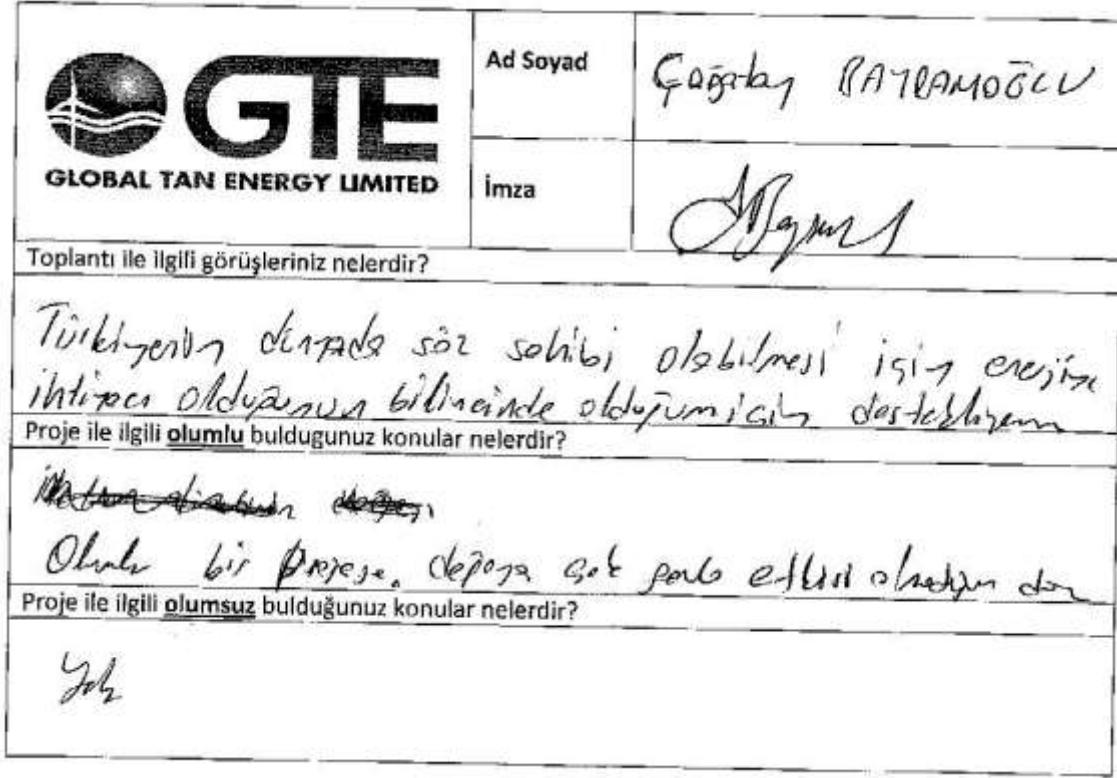 GTE
GLOBAL TAN ENERGY LIMITED
Ad Soyad
Çağatay BAYRAMOĞLU
İmza
Toplantı ile ilgili görüşleriniz nelerdir?
Türkiyenin dünyada söz sahibi olabilmesi için enerjiye
ihtiyacı olduğunun bilincinde olduğum için destekliyorum
Proje ile ilgili olumlu buldugunuz konular nelerdir?
Olumlu bir proje. doğaya çok fazla etkisi olmadığın dan
Proje ile ilgili olumsuz bulduğunuz konular nelerdir?
Yok